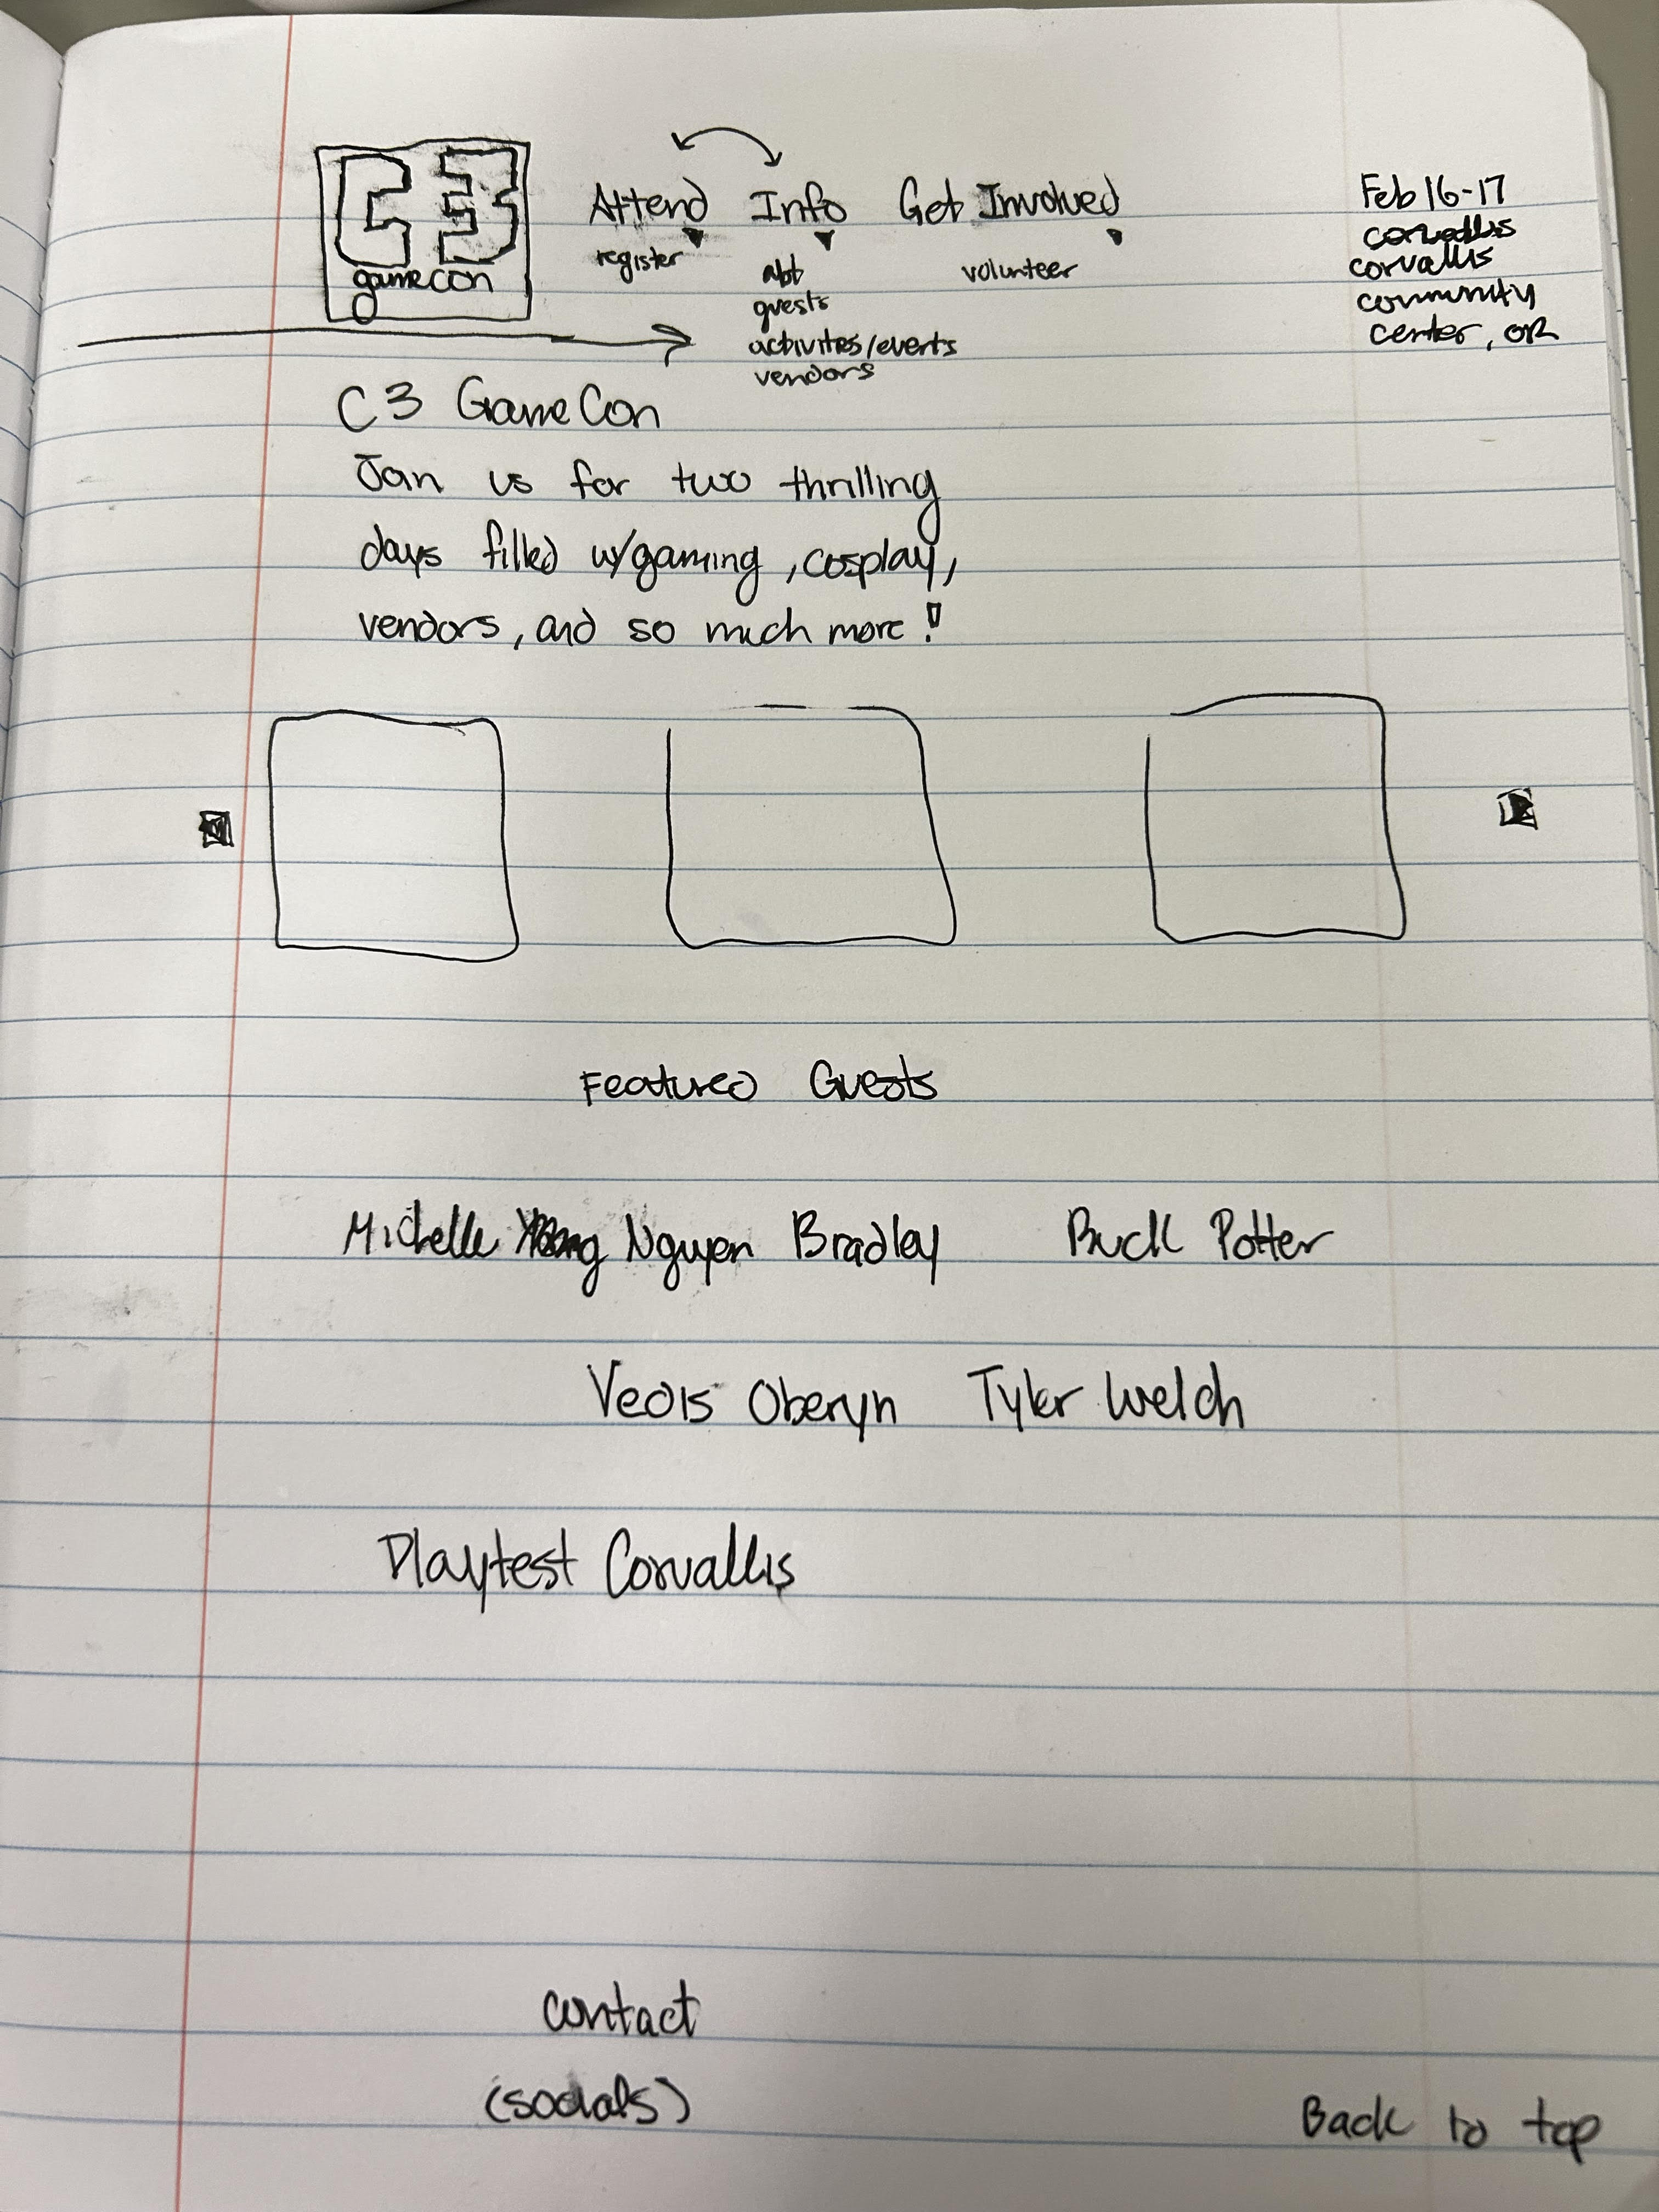 C3
gamecon
Attend Info Get Involved
register
abt
guests
activites/events
vendors
volunteer
Feb 16-17
corvallis
community
center, OR
C3 GameCon
Join us for two thrilling
days filled w/gaming, cosplay,
vendors, and so much more!
Featured Guests
Michelle Nguyen Bradley Buck Potter
Veois Oberyn Tyler Welch
Playtest Corvallis
contact
(socials)
Back to top